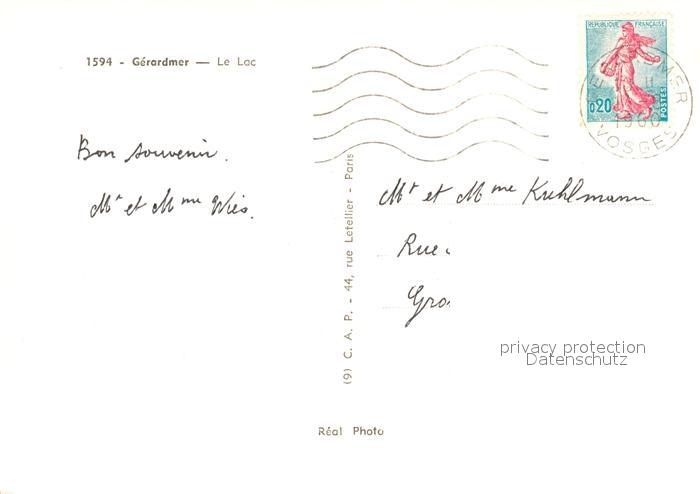 1594 - Gérardmer — Le Lac
Bon souvenir.
Mr et Mme Wies.
(9) C. A. P. - 44, rue Letellier - Paris
Réal Photo
REPUBLIQUE FRANÇAISE
0,20
POSTES
1960
VOSGES
Mr et Mme Kuhlmann
Rue
Gro
privacy protection
Datenschutz